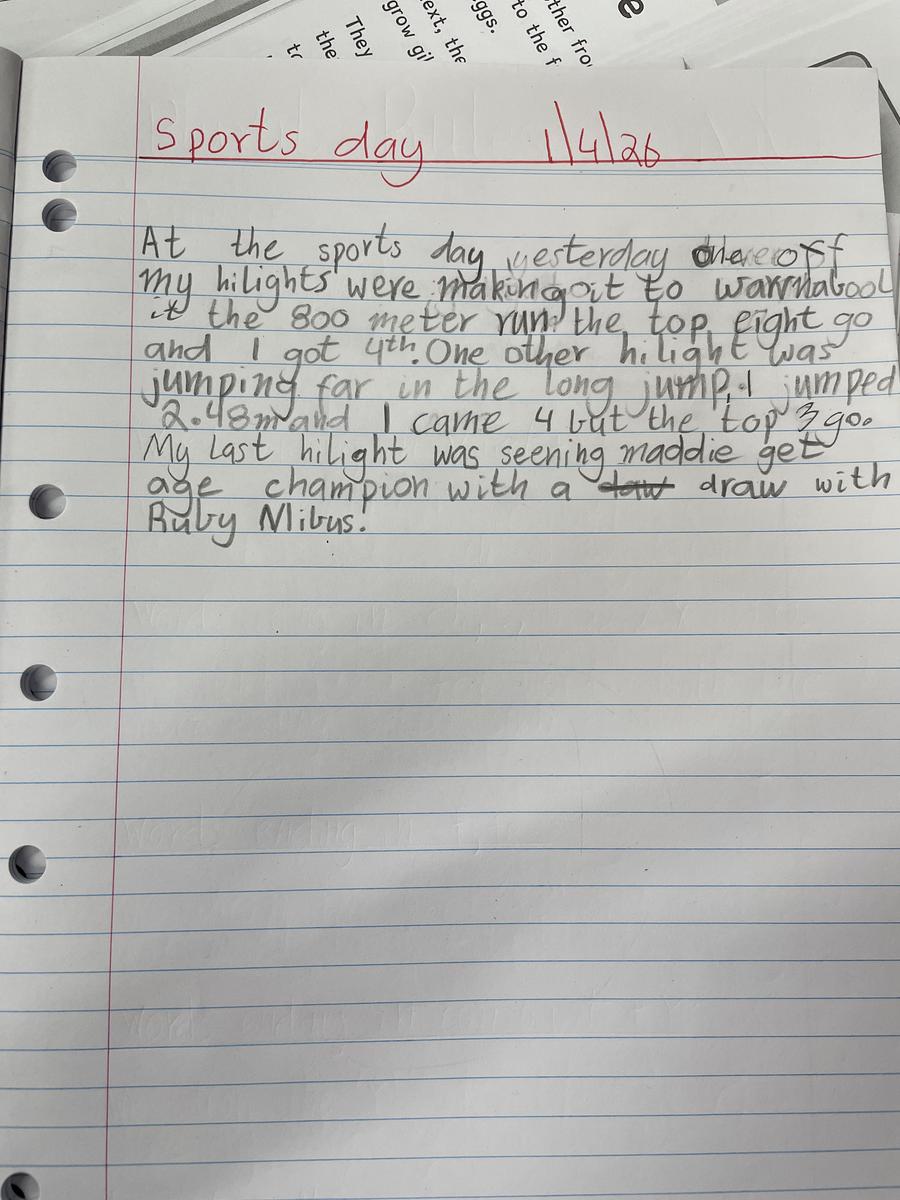 ther fro
to the f
ggs.
ext, the
grow gil
They
the
to
e
Sports day 1/4/26
At the sports day yesterday one off
my hilights were making it to warrnabool
it the 800 meter run the top eight go
and I got 4th. One other hilight was
jumping far in the long jump, I jumped
2.48m and I came 4 but the top 3 go.
My last hilight was seening maddie get
age champion with a daw draw with
Ruby Mibus.